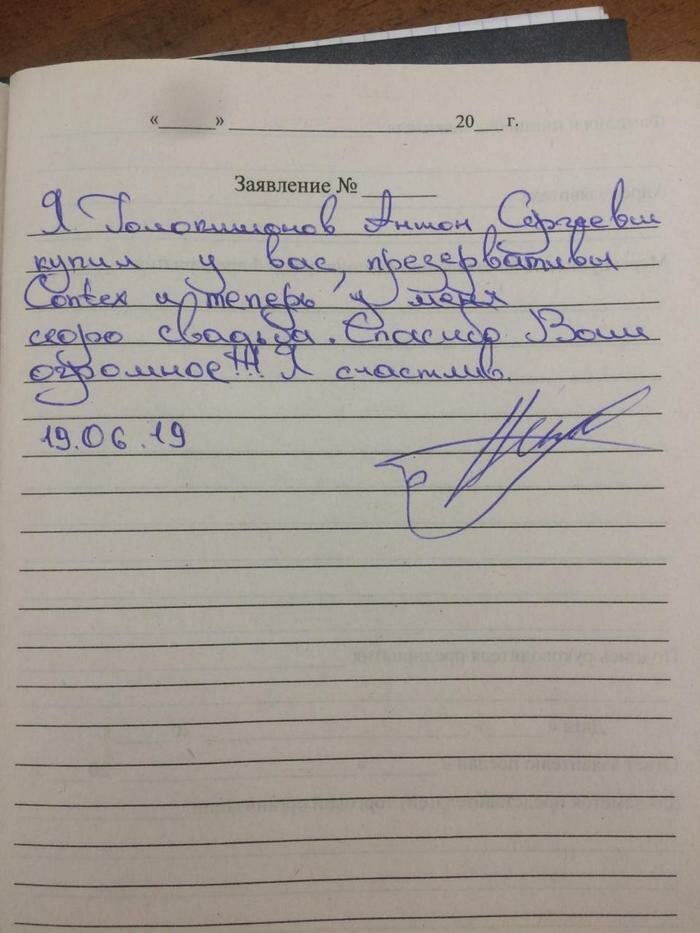 «_____» ____________________ 20___ г.
Заявление № _______
Я Толокшионов Антон Сергеевич
купил у вас, презервативы
Contex и теперь у меня
скоро свадьба. Спасибо Вам
огромное!!! Я счастлив.
19.06.19